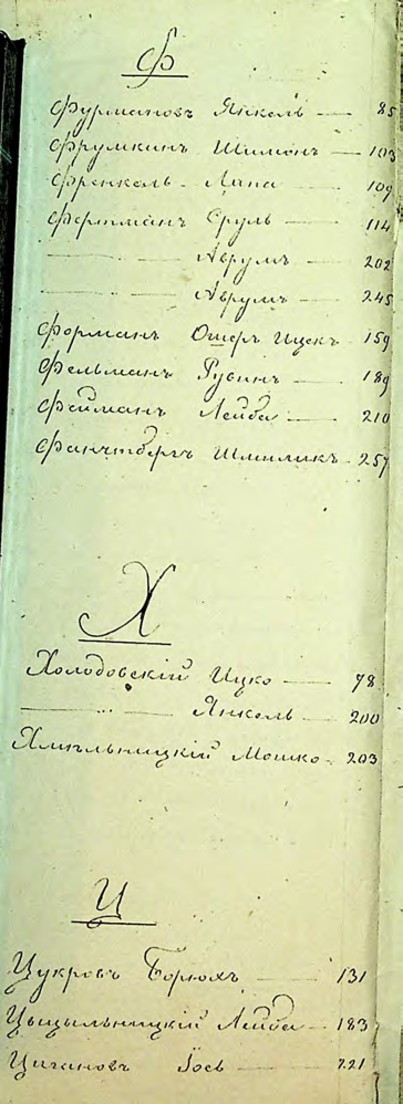 Ф
Фурмановъ Янкель — 85
Фрумкинъ Шимонъ — 103
Френкель - Лапа — 109
Фертманъ Сруль — 114
—— " —— Аврумъ — 202
—— " —— Аврумъ — 245
Форманъ Ошеръ Ицекъ - 159
Фельманъ Рувинъ — 189
Файманъ Лейба — 210
Шмиликъ - 257
Х
Холодовскій Ицко — 78
—— " —— Янкель — 200
Хмѣльницкій Мошко - 203
Ц
Цукровъ Борюхъ — 131
Цыцыльницкій Лейба — 183
Цигановъ Іось — 221